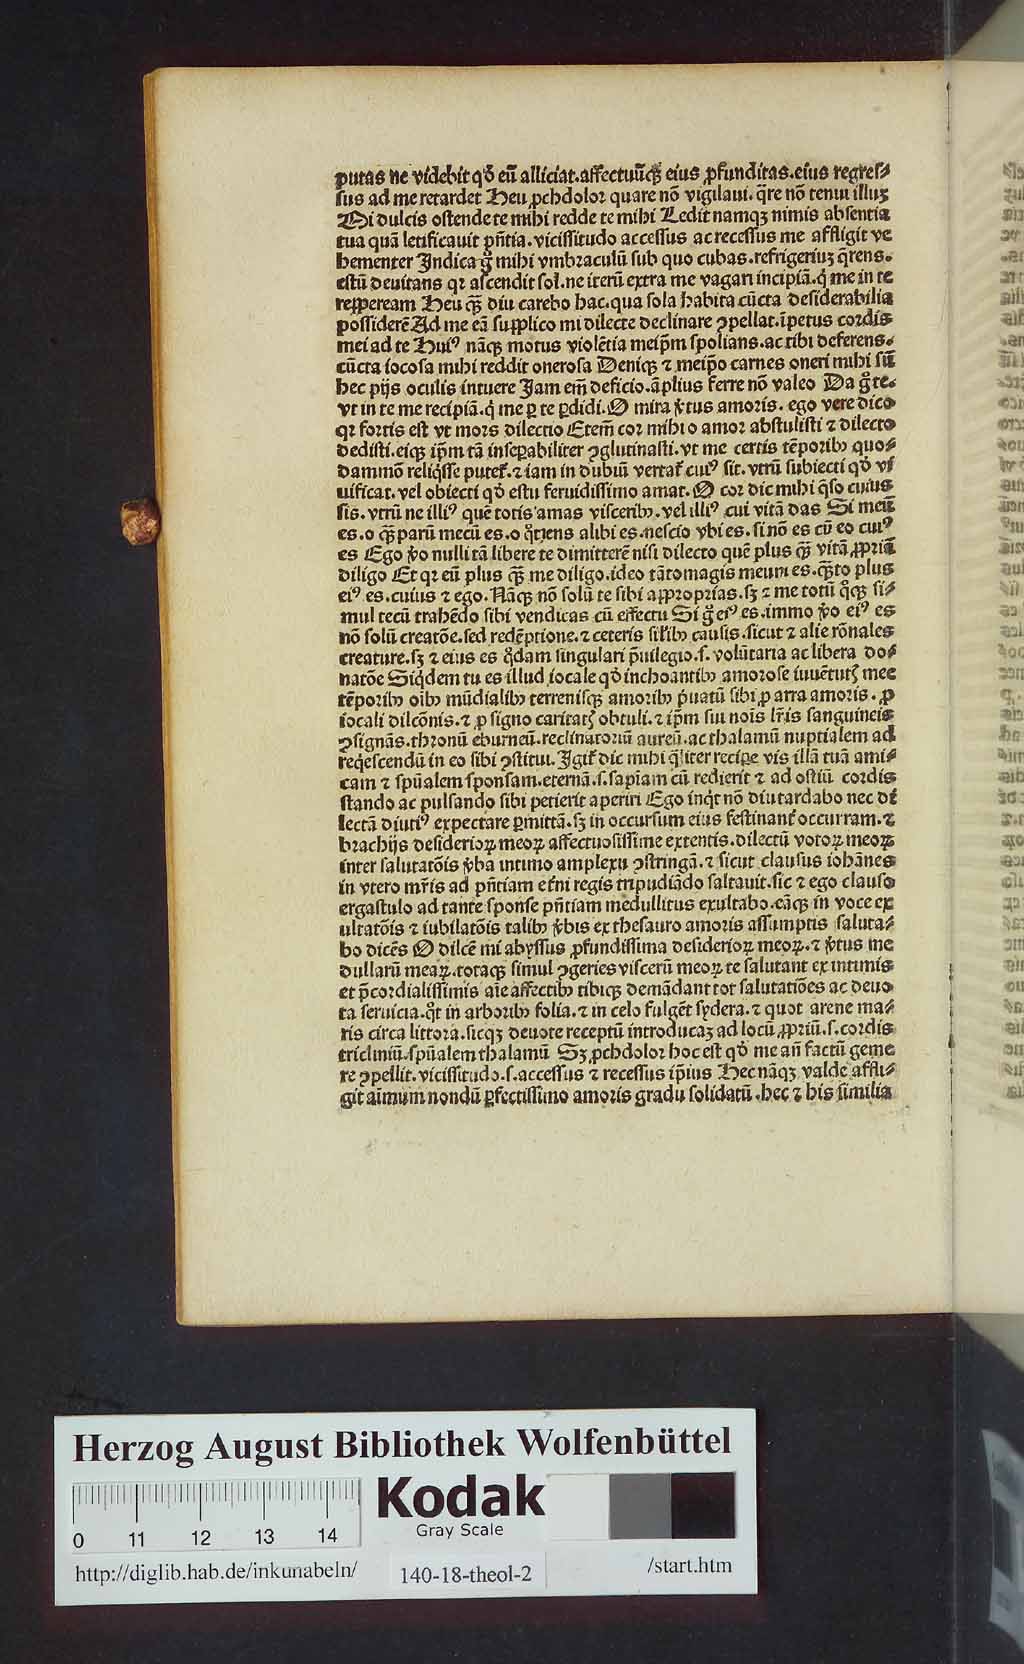 putas ne videbit qđ eū alliciat.affectuūqꝫ eius ꝓfunditas.eius regres⸗
sus ad me retardet Heu ꝓchdolor quare nō vigilaui.q̄re nō tenui illuꝫ
Mi dulcis ostende te mihi redde te mihi Ledit namqꝫ nimis absentia
tua quā letificauit pn̄tia.vicissitudo accessus ac recessus me affligit ve
hementer Indica gͦ mihi vmbraculū sub quo cubas.refrigeriuꝫ q̄rens.
estū deuitans qꝛ ascendit sol.ne iterū extra me vagari incipiā.q' me in te
reppeream Heu qꝫ̄ diu carebo hac.qua sola habita cūcta desiderabilia
possiderē Ad me eā supplico mi dilecte declinare ꝯpellat.īpetus cordis
mei ad te Huiꝰ nāqꝫ motus violētia meip̄m spolians.ac tibi deferens.
cūcta iocosa mihi reddit onerosa Deniqꝫ ⁊ meip̄o carnes oneri mihi sūt
hec pijs oculis intuere Jam em̄ deficio.āplius ferre nō valeo Da gͦ te.
vt in te me recipiā.q' me ꝑ te ꝑdidi.O mira v̓tus amoris.ego vere dico
qꝛ fortis est vt mors dilectio Etem̄ cor mihi o amor abstulisti ⁊ dilecto
dedisti.eiqꝫ ip̄m tā insepabiliter ꝯglutinasti.vt me certis tēporibꝫ quo⸗
dammō reliq̄sse putet̄.⁊ iam in dubiū vertat̄ cuiꝰ sit.vtrū subiecti qđ vi
uificat.vel obiecti qđ estu feruidissimo amat.O cor dic mihi q̄so cuius
sis.vtrū ne illiꝰ quē totis amas visceribꝫ.vel illiꝰ cui vitā das Si meū
es.o qꝫ̄ parū mecū es.o qͦtiens alibi es.nescio vbi es.si nō es cū eo cuiꝰ
es Ego v̓o nulli tā libere te dimitterē nisi dilecto quē plus qꝫ̄ vitā ꝓpriā
diligo Et qꝛ eū plus qꝫ̄ me diligo.ideo tātomagis meum es.qꝫ̄to plus
eiꝰ es.cuius ⁊ ego.Nāqꝫ nō solū te sibi approprias.sꝫ ⁊ me totū qͦqꝫ si⸗
mul tecū trahēdo sibi vendicas cū effectu Si gͦ eiꝰ es.immo v̓o eiꝰ es
nō solū creatōe.sed redēptione.⁊ ceteris sil̓ibꝫ causis.sicut ⁊ alie rōnales
creature.sꝫ ⁊ eius es qͦdam singulari p̄uilegio.s.volūtaria ac libera do⸗
natōe Siq̓dem tu es illud iocale qđ inchoantibꝫ amorose iuuētutꝭ mee
tēporibꝫ oībꝫ mūdialibꝫ terrenisqꝫ amoribꝫ p̓uatū sibi ꝓ arra amoris.ꝓ
iocali dilcōnis.⁊ ꝓ signo caritatꝭ obtuli.⁊ ip̄m sui noīs lr̄is sanguineis
ꝯsignās.thronū eburneū.reclinatoriū aureū.ac thalamū nuptialem ad
req̓escendū in eo sibi ꝯstitui.Igit̄ dic mihi q̄liter recipe vis illā tuā ami⸗
cam ⁊ spūalem sponsam.eternā.s.sapīam cū redierit ⁊ ad ostiū cordis
stando ac pulsando sibi petierit aperiri Ego inq̓t nō diu tardabo nec di
lectā diutiꝰ expectare ꝑmittā.sꝫ in occursum eius festinant̓ occurram.⁊
brachijs desiderioꝝ meoꝝ affectuosissime extentis.dilectū votoꝝ meoꝝ
inter salutatōis v̓ba intimo amplexu ꝯstringā.⁊ sicut clausus iohānes
in vtero mr̄is ad pn̄tiam et̓ni regis tripudiādo saltauit.sic ⁊ ego clauso
ergastulo ad tante sponse pn̄tiam medullitus exultabo.eāqꝫ in voce ex
ultatōis ⁊ iubilatōis talibꝫ v̓bis ex thesauro amoris assumptis saluta⸗
bo dicēs O dilcē mi abyssus ꝓfundissima desiderioꝝ meoꝝ.⁊ v̓tus me
dullarū meaꝝ.totaqꝫ simul ꝯgeries viscerū meoꝝ te salutant ex intimis
et p̄cordialissimis aīe affectibꝫ tibiqꝫ demādant tot salutatiōes ac deuo
ta seruicia.qͦt in arboribꝫ folia.⁊ in celo fulgēt sydera.⁊ quot arene ma⸗
ris circa littora.sicqꝫ deuote receptū introducaꝫ ad locū ꝓpriū.s.cordis
tricliniū.spūalem thalamū Sꝫ ꝓchdolor hoc est qđ me an̄ factū geme
re ꝯpellit.vicissitudo.s.accessus ⁊ recessus ip̄ius Hec nāqꝫ valde affli⸗
git aīmum nondū ꝑfectissimo amoris gradu solidatū.hec ⁊ his similia
Herzog August Bibliothek Wolfenbüttel
Kodak
Gray Scale
0 11 12 13 14
http://diglib.hab.de/inkunabeln/
140-18-theol-2
/start.htm